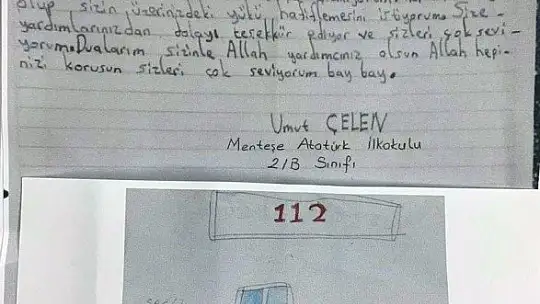 olup sizin üzerinizdeki yükü hafiflemesini istiyorum. Size
yardımlarınızdan dolayı teşekkür ediyor ve sizleri çok sevi-
yorum. Dualarım sizinle Allah yardımcınız olsun Allah hepi-
nizi korusun sizleri çok seviyorum bay bay.
Umut ÇELEN
Menteşe Atatürk İlkokulu
2/B Sınıfı
112